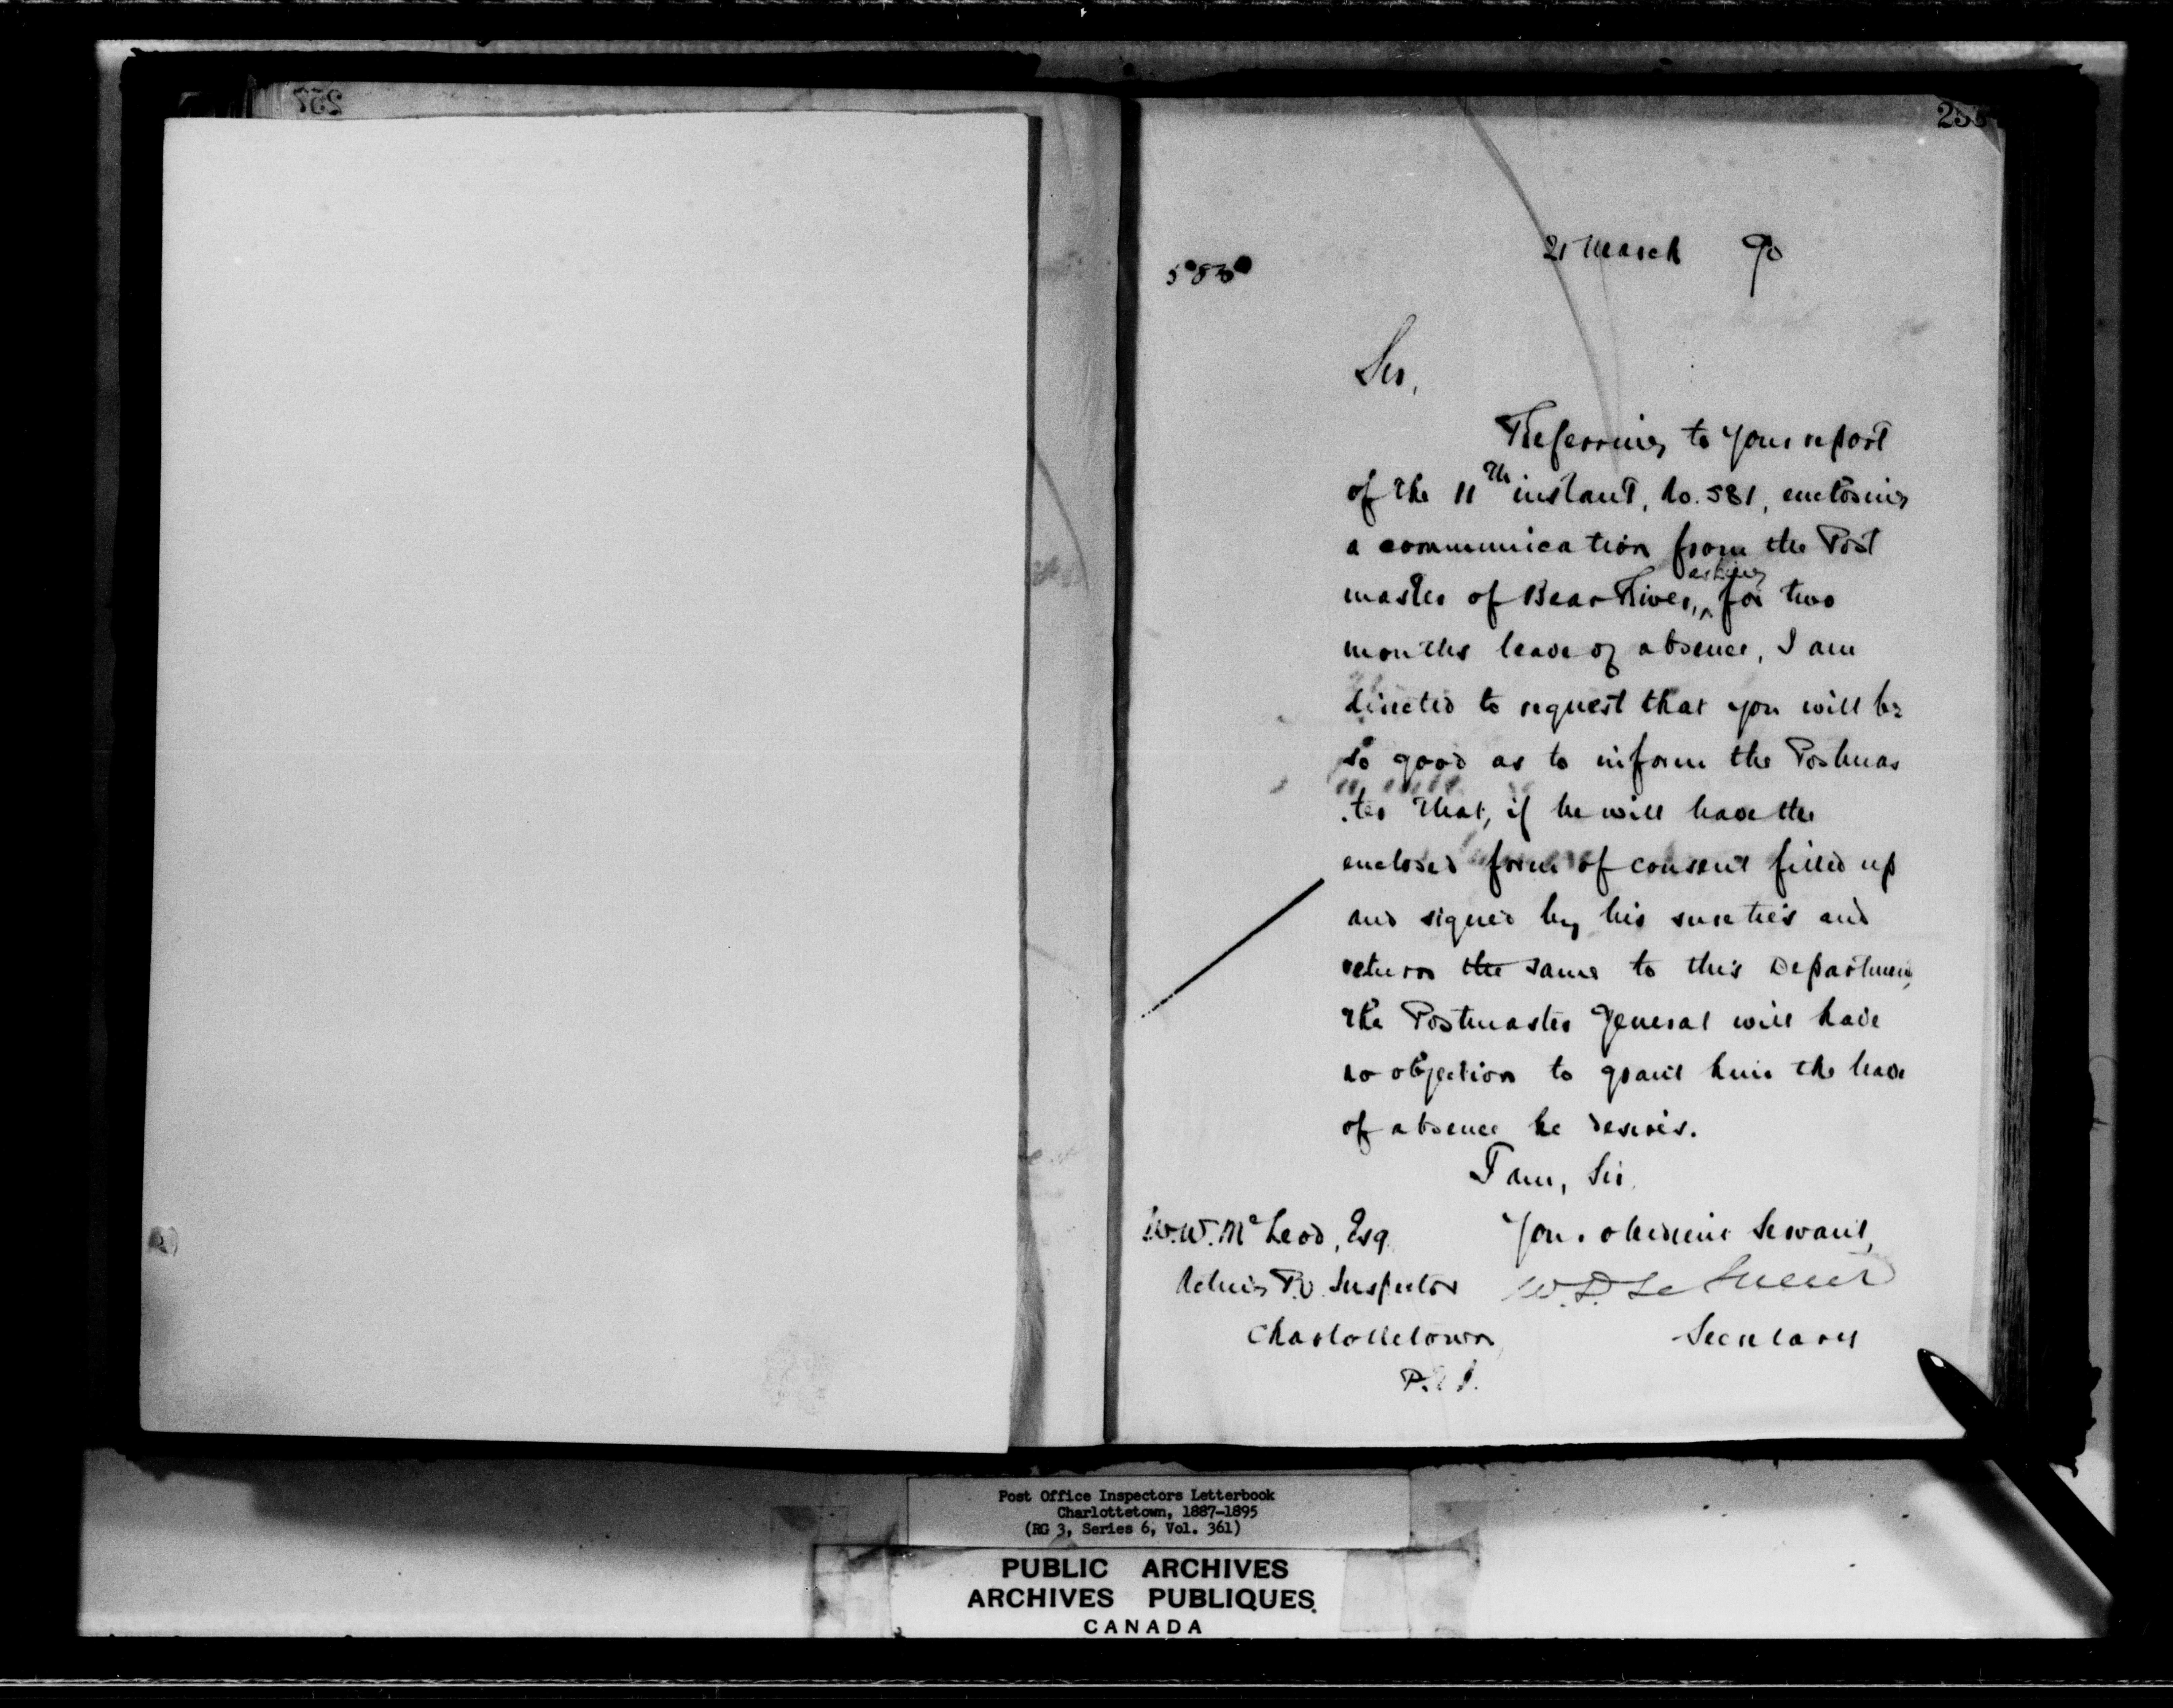 257
21 March 90
Sir,
Referring to your report
of the 11th instant, No. 581, enclosing
a communication from the Post
master of Bear River, asking for two
months leave of absence, I am
directed to request that you will be
so good as to inform the Postmas
.ter that, if he will have the
enclosed form of consent filled up
and signed by his sureties and
return the same to this Department,
the Postmaster General will have
no objection to grant him the leave
of absence he desires.
I am, Sir,
Your obedient Servant,
W.D. Le Sueur
Secretary
W.W. McLeod, Esq.
Acting P.O. Inspector
Charlottetown
P.E.I.
Post Office Inspectors Letterbook
Charlottetown, 1887-1895
(RG 3, Series 6, Vol. 361)
PUBLIC ARCHIVES
ARCHIVES PUBLIQUES
CANADA